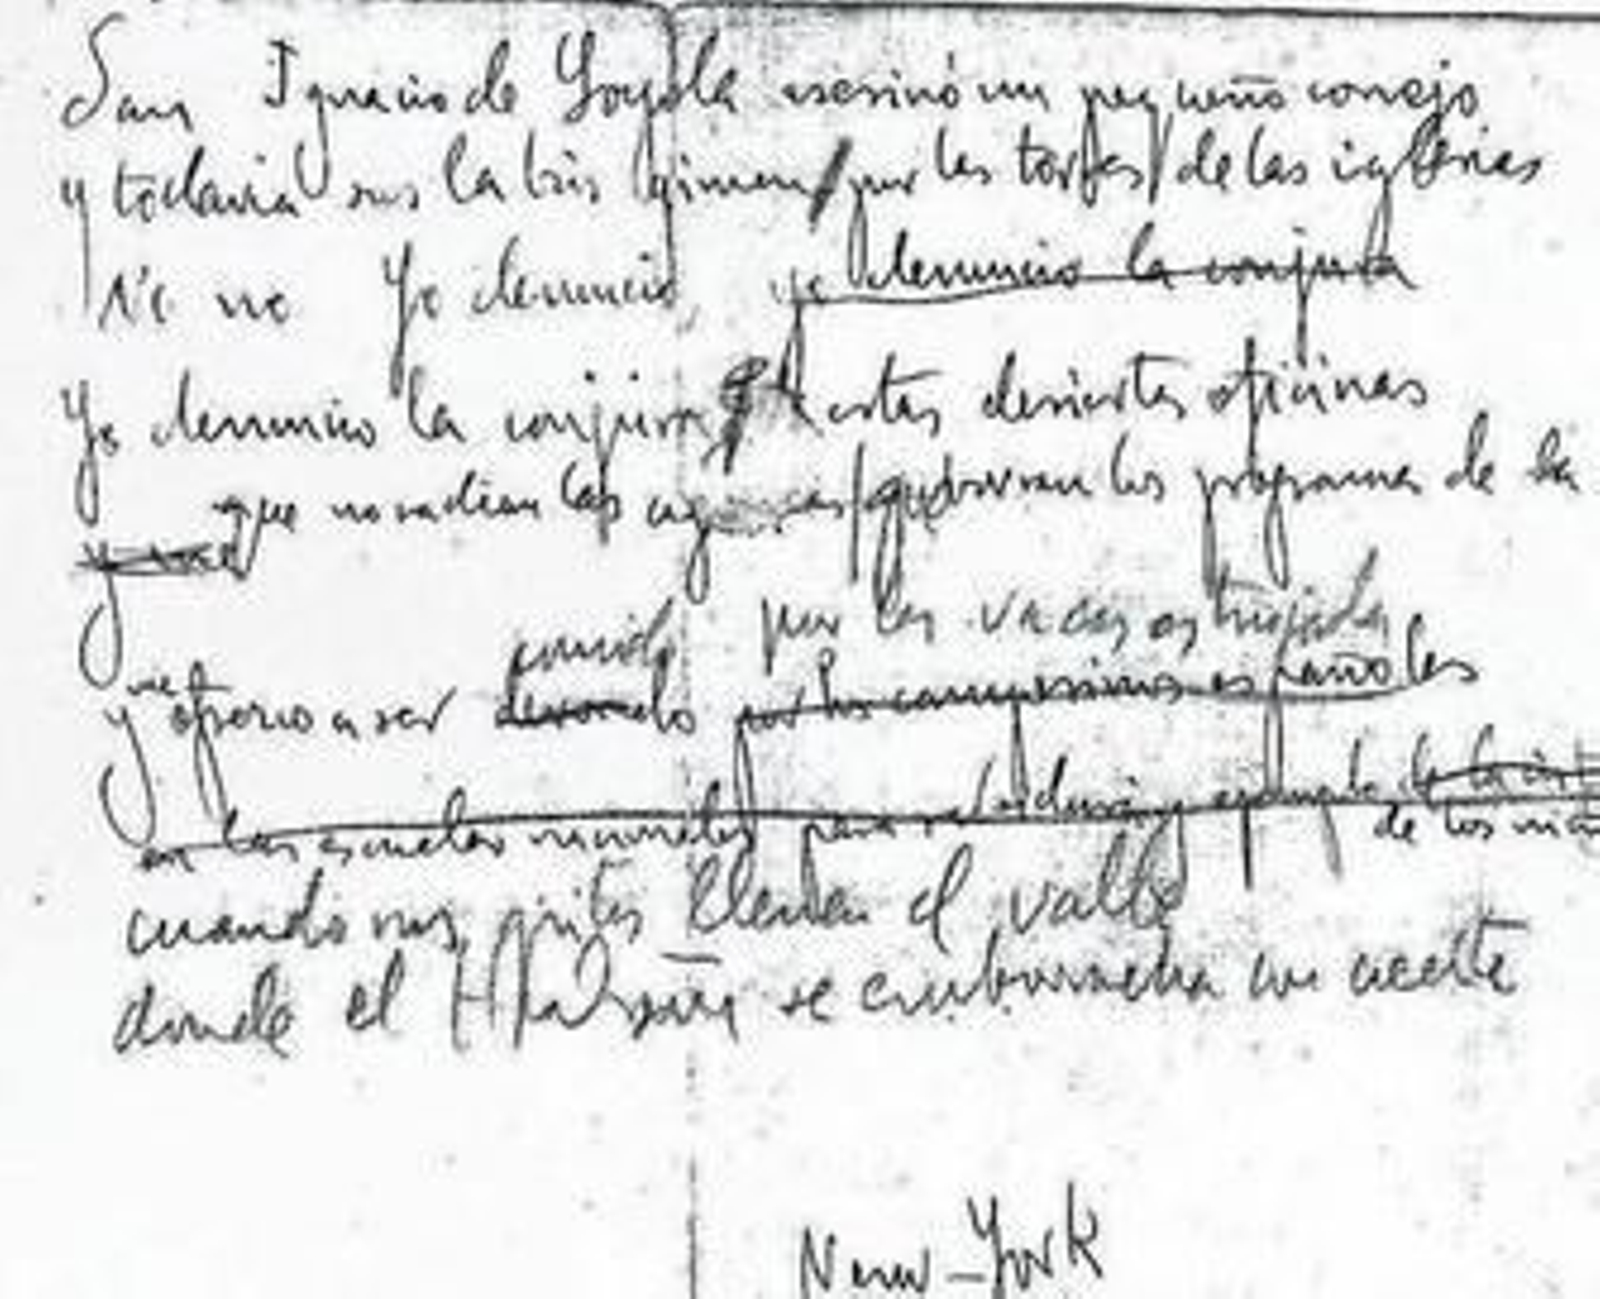 San Ignacio de Loyola asesinó un pequeño conejo
y todavia sus labios gimen por las torres de las iglesias
No no Yo denuncio, yo denuncio la conjura
Yo denuncio la conjura de estas desiertas oficinas
que no radian las agonias que borran los programas de la
y me
comido por las vacas estrujadas
y me ofrezco a ser devorado por los campesinos españoles
en las escuelas nacionales para
de los
cuando sus gritos llenan el valle
donde el Hudson se emborracha con aceite
New-York